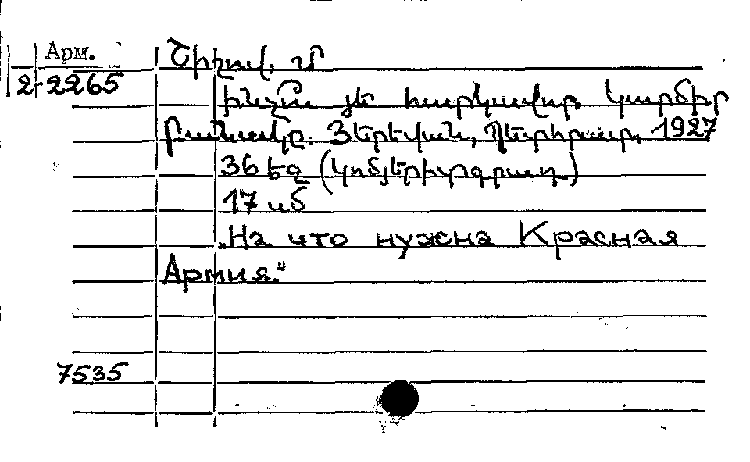 Арм.
2-2265
Շիշավ. Մ
Ինչու յե հարկավոր Կարմիր
բանակը. Յերեվան, Պետհրատ, 1927
36 եջ (Կոմյերիտգրադ.)
17 սմ
„На что нужна Красная
Армия."
7535